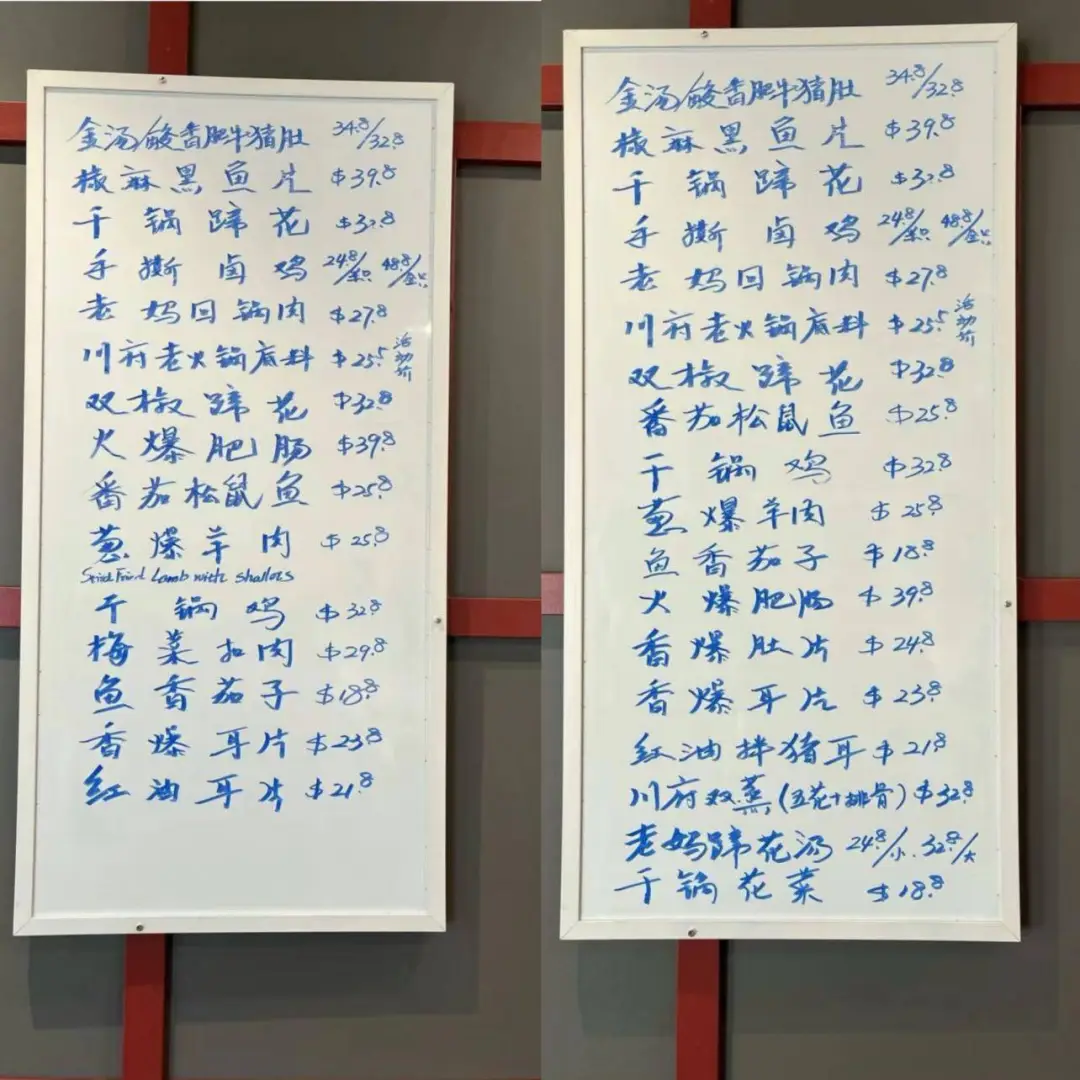 金汤酸香肥牛猪肚 34.8/32.8
椒麻黑鱼片 $39.8
干锅蹄花 $32.8
手撕卤鸡 24.8/半只 48.8/全只
老妈回锅肉 $27.8
川府老火锅底料 $25.5 活动价
双椒蹄花 $32.8
火爆肥肠 $39.8
番茄松鼠鱼 $25.8
葱爆羊肉 $25.8
Stired Fried Lamb with shallots
干锅鸡 $32.8
梅菜扣肉 $29.8
鱼香茄子 $18.8
香爆耳片 $23.8
红油耳片 $21.8
金汤酸香肥牛猪肚 34.8/32.8
椒麻黑鱼片 $39.8
干锅蹄花 $32.8
手撕卤鸡 24.8/半只 48.8/全只
老妈回锅肉 $27.8
川府老火锅底料 $25.5 活动价
双椒蹄花 $32.8
番茄松鼠鱼 $25.8
干锅鸡 $32.8
葱爆羊肉 $25.8
鱼香茄子 $18.8
火爆肥肠 $39.8
香爆肚片 $24.8
香爆耳片 $23.8
红油拌猪耳 $21.8
川府双蒸(五花+排骨) $32.8
老妈蹄花汤 24.8/小. 32.8/大
干锅花菜 $18.8